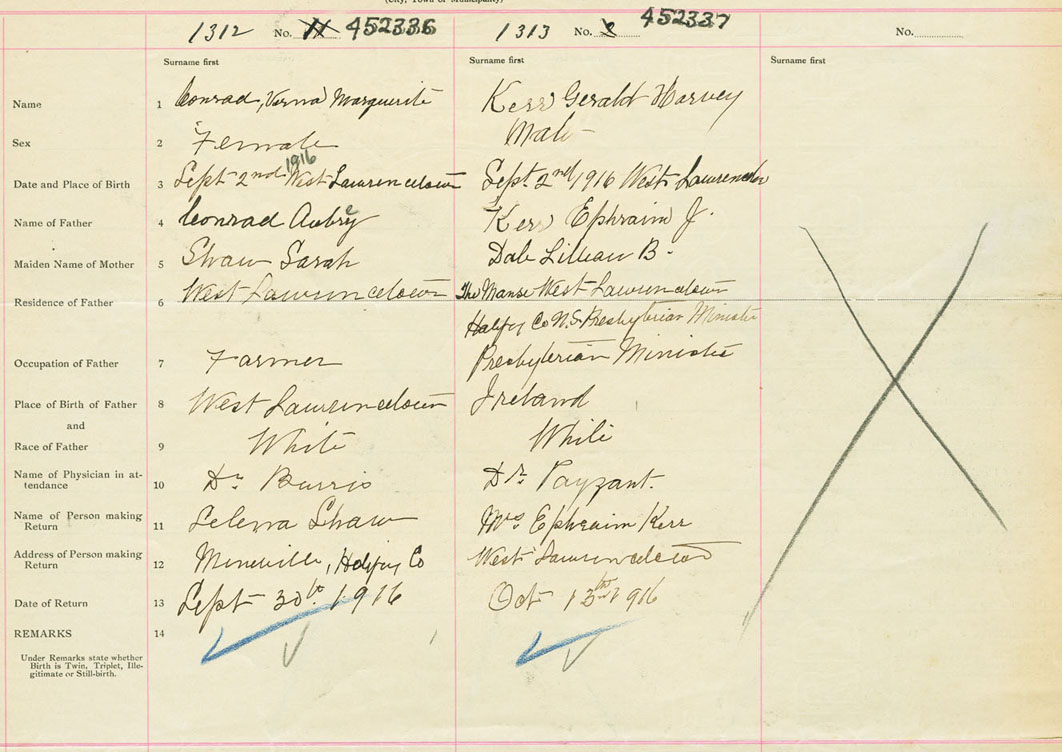 (City, Town or Municipality)
1312 No. 11 452336 1313 No. 452337 No.
Surname first Surname first Surname first
Name 1 Conrad, Verna Marguerite Kerr Gerald Harvey
Sex 2 Female Male
1916
Date and Place of Birth 3 Sept 2nd West Lawrencetown Sept. 2nd 1916 West Lawrencetown
Name of Father 4 Conrad Aubrey Kerr Ephraim J.
Maiden Name of Mother 5 Shaw Sarah Dale Lillian B.
Residence of Father 6 West Lawrencetown The Manse West Lawrencetown
Halifax Co N.S. Presbyterian Minister
Occupation of Father 7 Farmer Presbyterian Minister
Place of Birth of Father 8 West Lawrencetown Ireland
and
Race of Father 9 White White
Name of Physician in at-
tendance 10 Dr Burris Dr. Payzant.
Name of Person making
Return 11 Shaw Mrs Ephraim Kerr
Address of Person making
Return 12 Mineville, Halifax Co West Lawrencetown
Date of Return 13 Sept 30th 1916 Oct 13th 1916
REMARKS 14
Under Remarks state whether
Birth is Twin, Triplet, Ille-
gitimate or Still-birth.